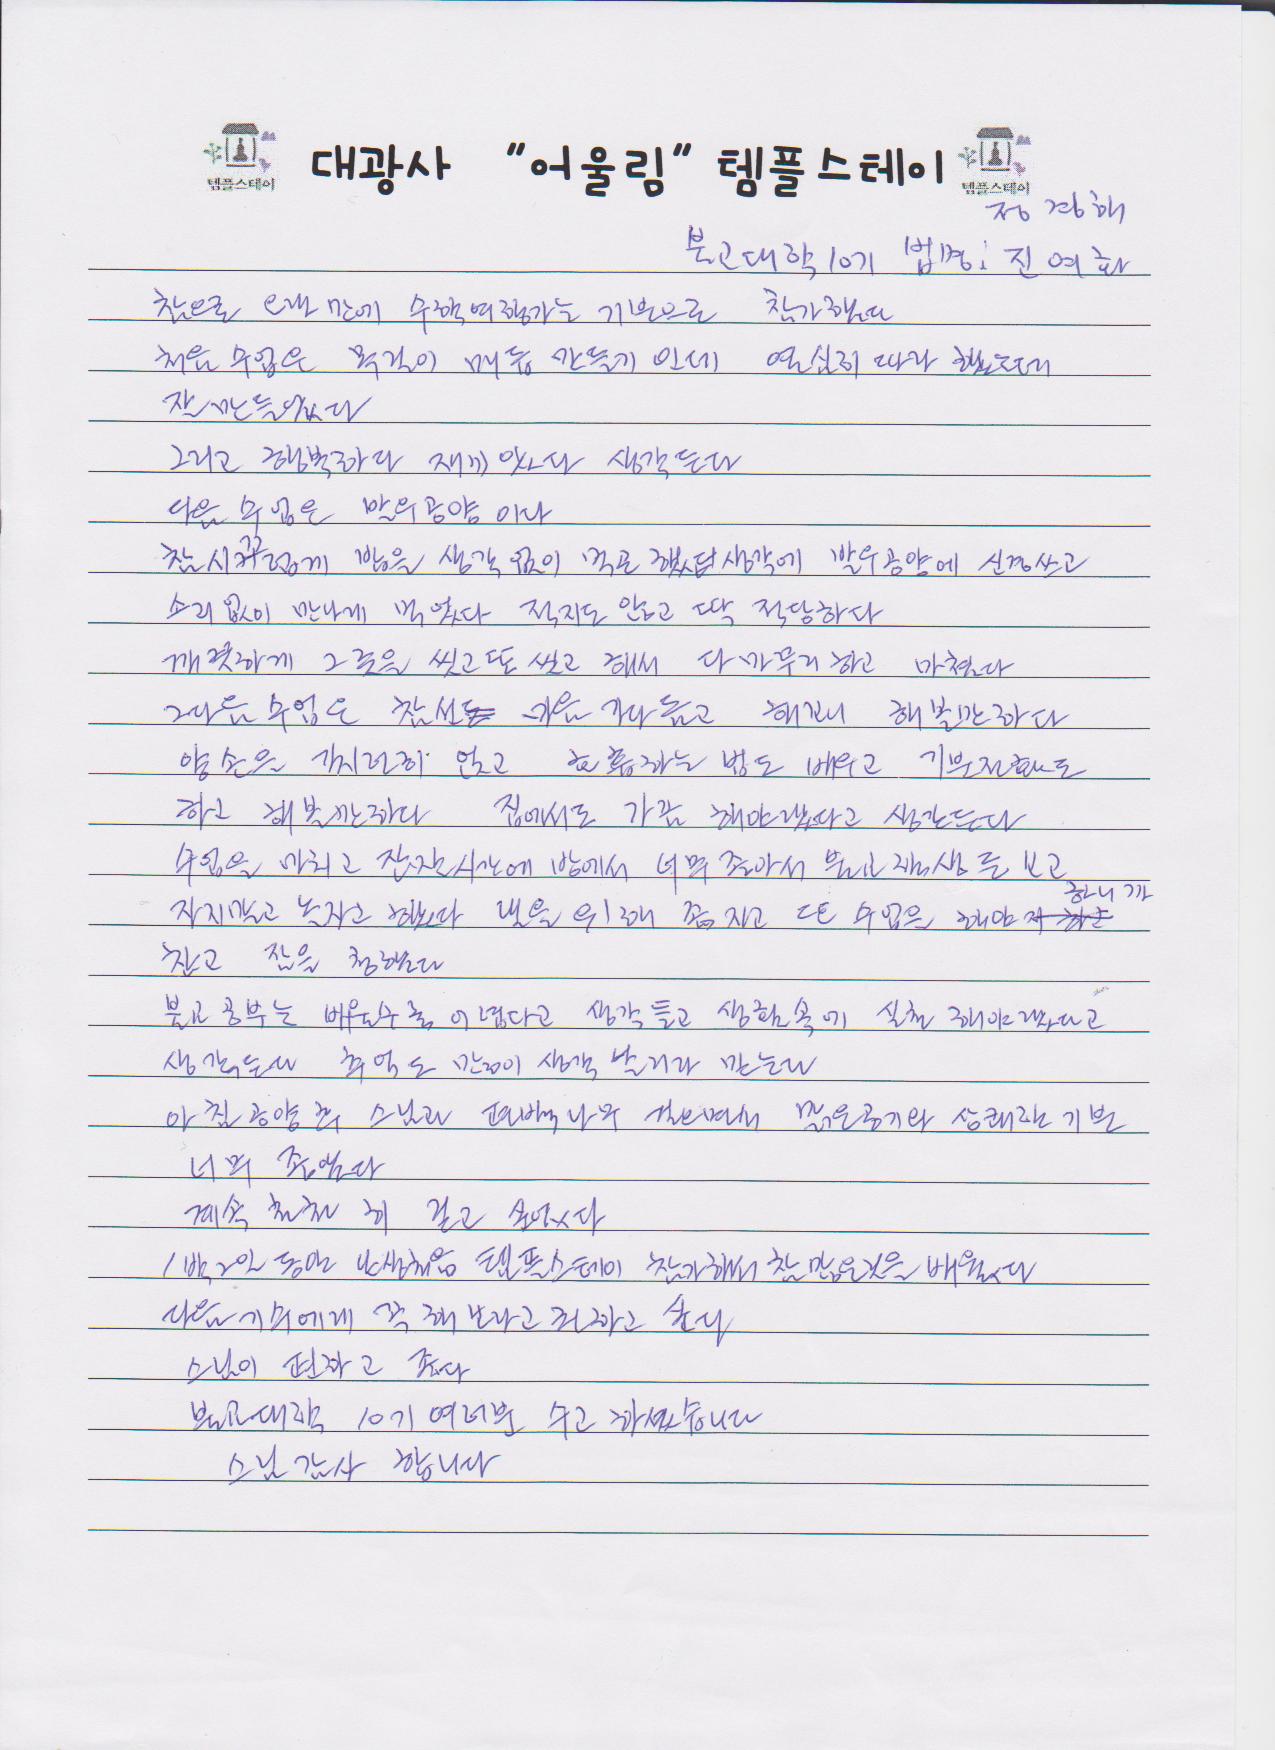 템플스테이 대광사 "어울림" 템플스테이 템플스테이
정경해
불교대학 10기 법명: 진여화
참으로 오랜만에 수학여행가는 기분으로 참가했다
처음 수업은 목걸이 매듭 만들기 인데 열심히 따라 했드니
잘 만들었다
그리고 행복하다 재미있다 생각든다
다음 수업은 발우공양 이다
참 시끄럽게 밥을 생각없이 먹고 했답 생각에 발우공양에 신경쓰고
소리없이 맛나게 먹었다 적지도 않고 딱 적당하다
깨끗하게 그릇을 씻고 또 씻고 해서 다 마무리하고 마쳤다
그다음 수업은 참선 마음 가다듬고 해보니 해볼만하다
양손은 가지런히 얹고 호흡하는 법도 배우고 기분전환도
하고 해볼만하다 집에서도 가끔 해야겠다고 생각든다
수업을 마치고 잠잘시간에 방에서 너무 좋아서 불교 학생들 보고
자지말고 놀자고 했다 내일을 위해 좀 자고 또 수업을 해야 하니까
참고 잠을 청했다
불교 공부는 배울수록 어렵다고 생각들고 생활속에 실천해야겠다고
생각든다 추억도 많이 생각날거라 믿는다
아침공양후 스님과 편백나무 걸으면서 맑은공기와 상쾌한 기분
너무 좋았다
계속 천천히 걷고 싶었다
1박2일 동안 난생처음 템플스테이 참가해서 참 많은것을 배웠다
다음기수에게 꼭 해보라고 권하고 싶다
스님이 편하고 좋다
불교대학 10기 여러분 수고하셨습니다
스님 감사합니다